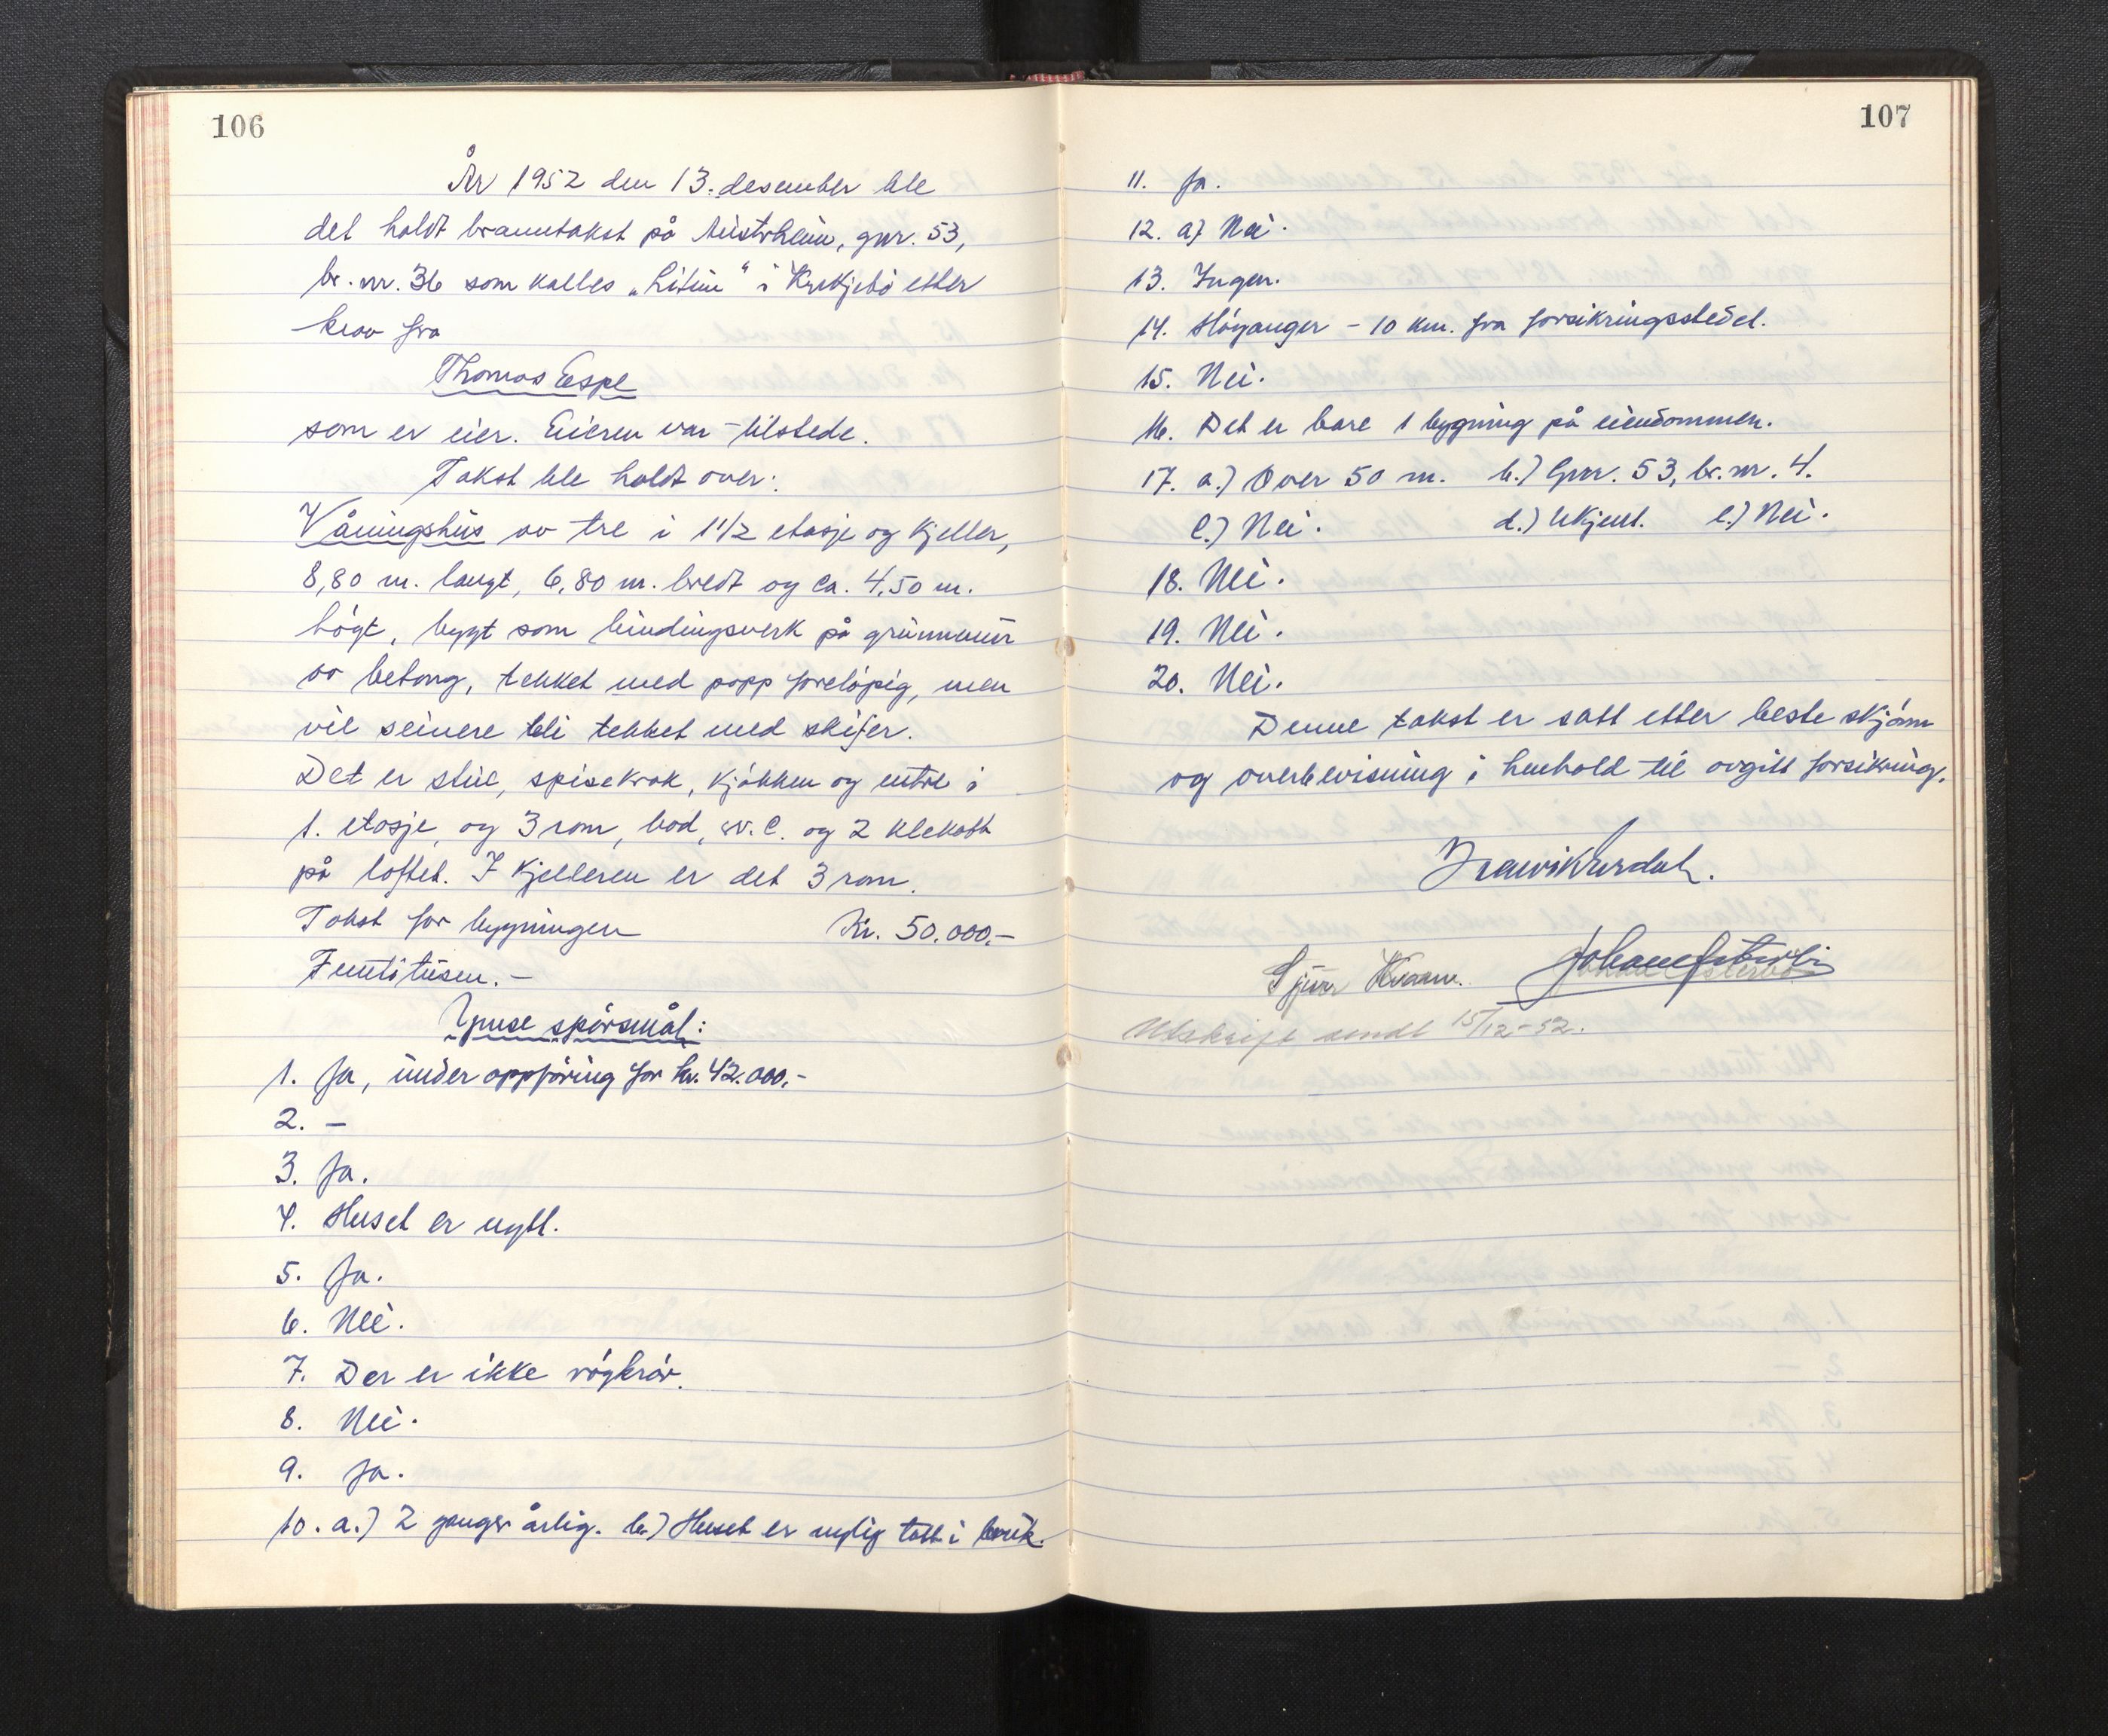 106
År 1952 den 13. desember ble
det holdt branntakst på Austrheim, gnr. 53,
br. nr. 36 som kalles „Litun" i Kyrkjebø etter
krav fra
Thomas Espe
som er eier. Eieren var tilstede.
Takst ble holdt over:
Våningshus av tre i 1 1/2 etasje og kjeller,
8,80 m. langt, 6,80 m. bredt og ca. 4,50 m.
högt, bygt som bindingsverk på grunnmur
av betong, tekket med papp foreløpig, men
vil seinere bli tekket med skifer.
Det er stue, spisekrok, kjøkken og entre i
1. etasje, og 3 rom, bod, w.c. og 2 klekott
på loftet. I kjelleren er det 3 rom.
Takst for bygningen Kr. 50.000.-
Femtitusen.-
Ymse spørsmål:
1. Ja, under oppføring for kr. 42.000.-
2. -
3. Ja.
4. Huset er nytt.
5. Ja.
6. Nei.
7. Der er ikke røykrør.
8. Nei.
9. Ja.
10. a.) 2 ganger årlig. b.) Huset er nylig tatt i bruk.
107
11. Ja.
12. a) Nei.
13. Ingen.
14. Høyanger - 10 km. fra forsikringsstedet.
15. Nei.
16. Det er bare 1 bygning på eiendommen.
17. a.) Over 50 m. b.) Gnr. 53, br. nr. 4.
c.) Nei. d.) Ukjent. e.) Nei.
18. Nei.
19. Nei.
20. Nei.
Denne takst er satt etter beste skjønn
og overbevisning i henhold til avgitt forsikring.
Sjur Kvamme. Johan Østerbø
Utskrift sendt 15/12-52.